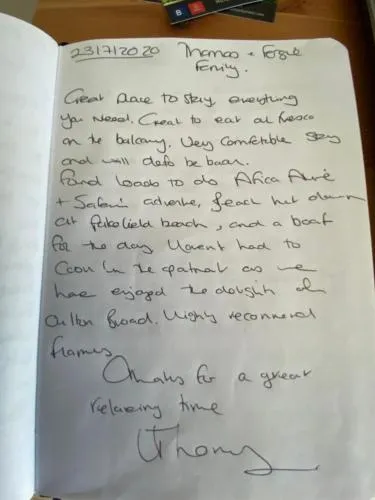 23/7/2020 Thomas + Fergie
Family.
Great place to stay everything
you need. Great to eat al fresco
on the balcony. Very comfetible stay
and will defo be back.
Found loads to do Africa Alive
+ Safari adventure, beach hut down
at Pakefield beach, and a boat
for the day. Havent had to
cook in the apatmat as we
have enjoyed the delights of
Oulton Broad. Highly recommend
Thanks for a great
relaxing time
Thomas